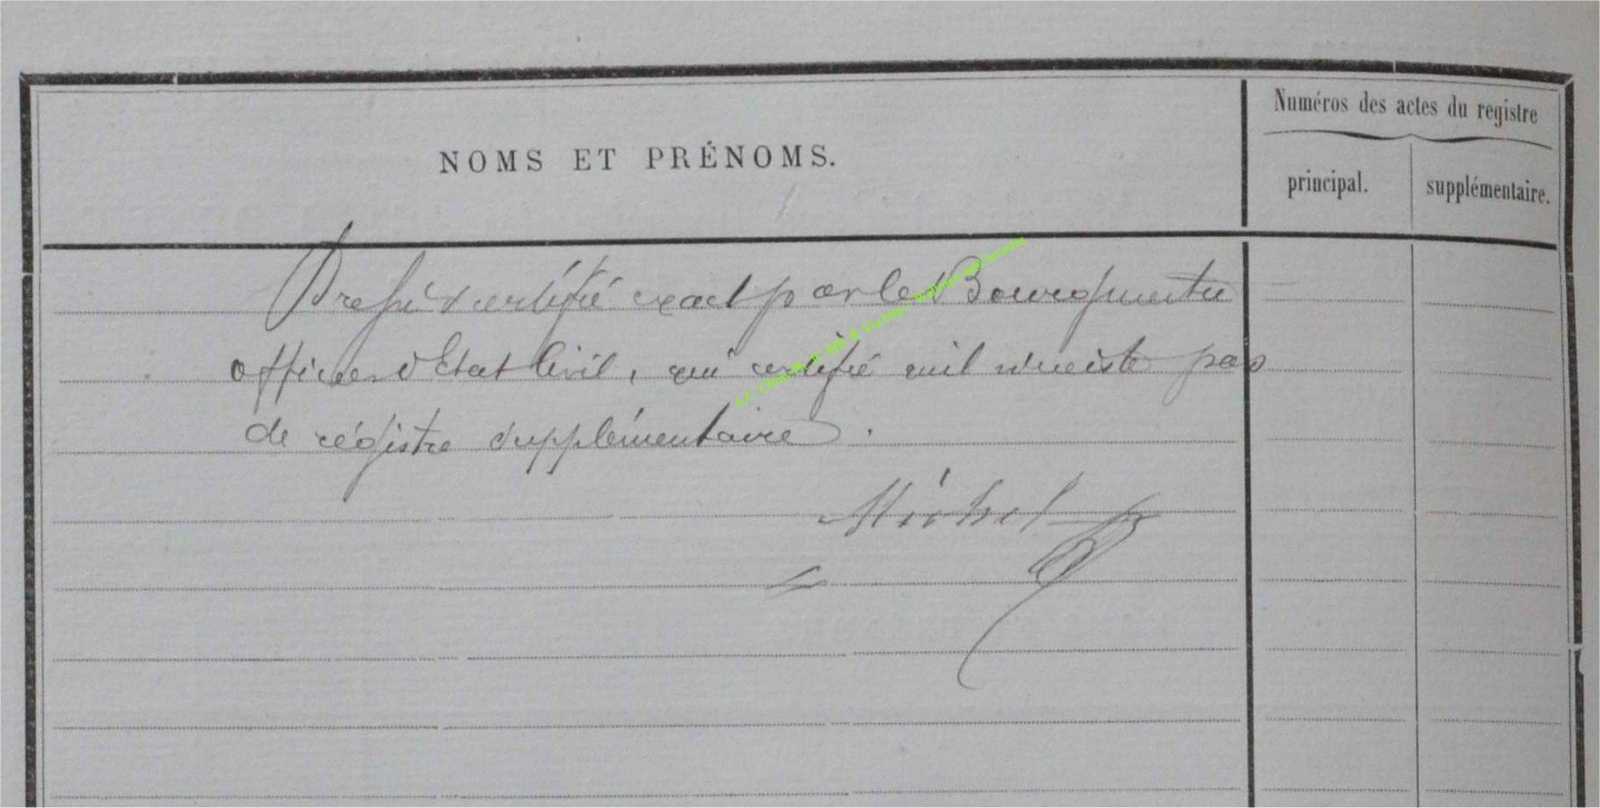 Numéros des actes du registre
NOMS ET PRÉNOMS.
principal. supplémentaire.
Dressé & certifié exact par le Bourgmestre
officier d'Etat Civil, qui certifie qu'il n'existe pas
de régistre supplémentaire.
Michel